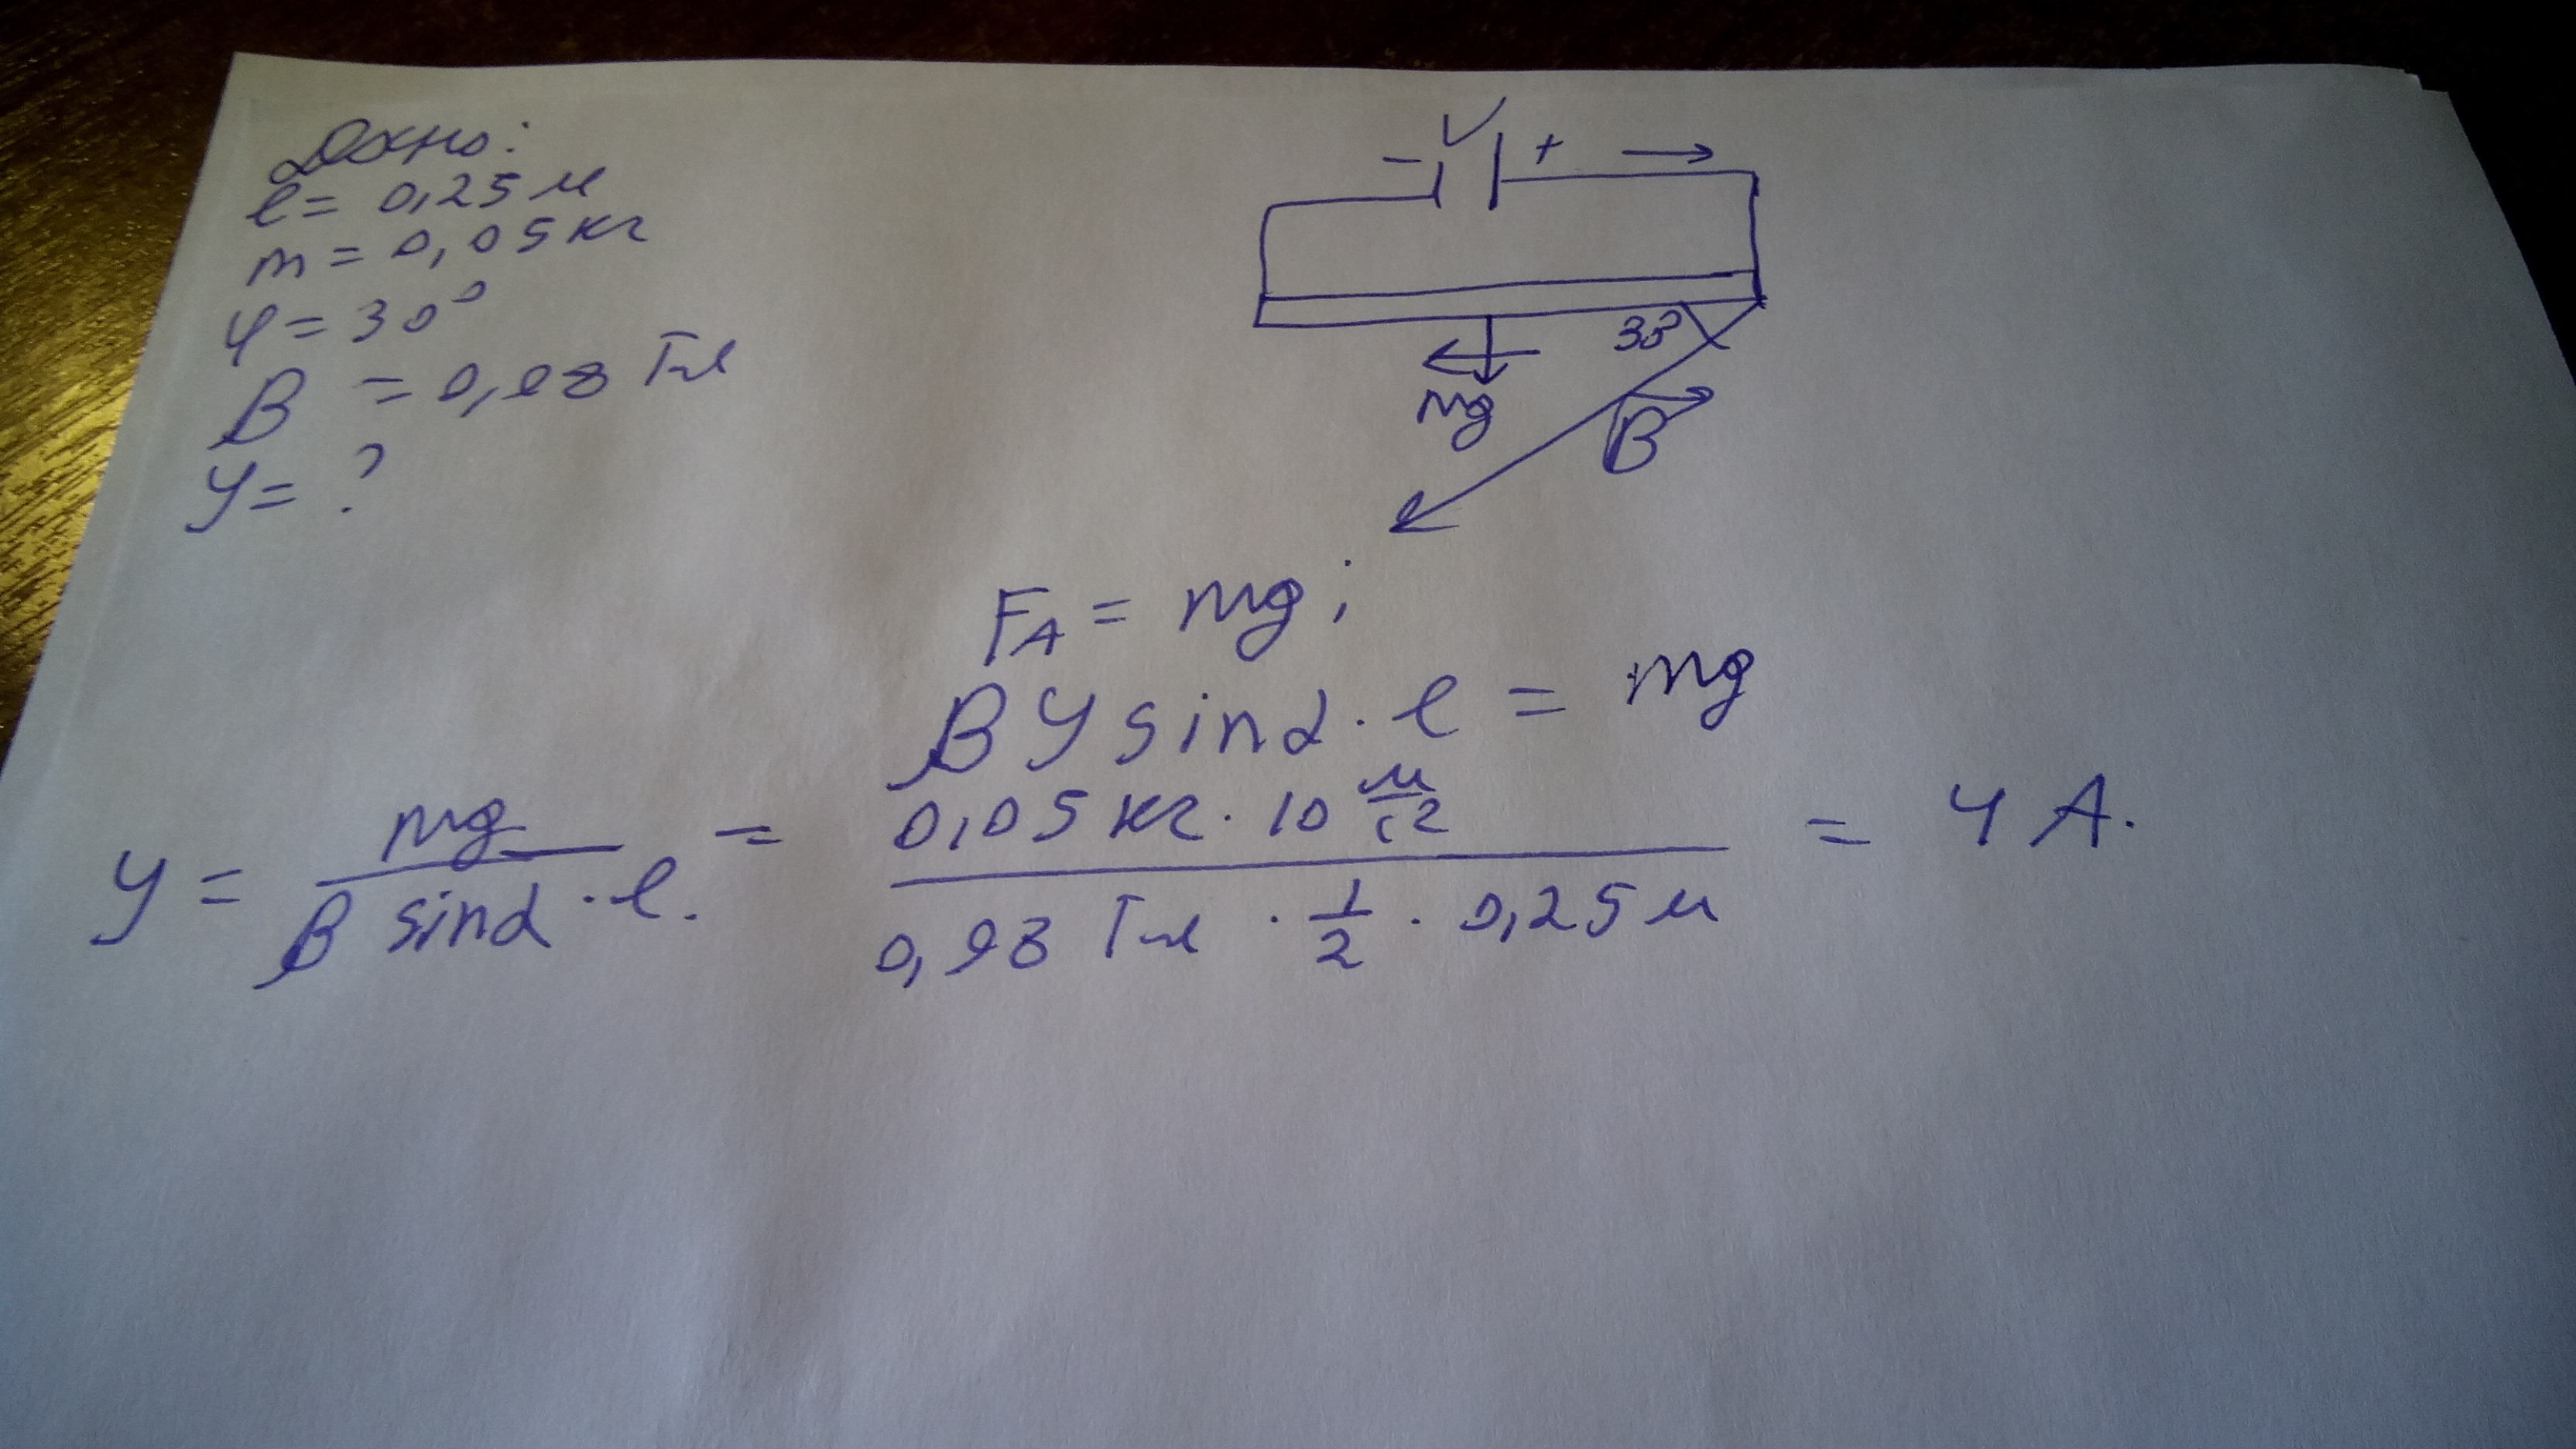 Дано:
l = 0,25 м
m = 0,05 кг
φ = 30°
B = 0,98 Тл
У = ?
− V +
30°
mg
B
FА = mg;
B У sinα · l = mg
У = mg / B sinα · l. = 0,05 кг · 10 м/с2 / 0,98 Тл · 1/2 · 0,25 м = 4 А.